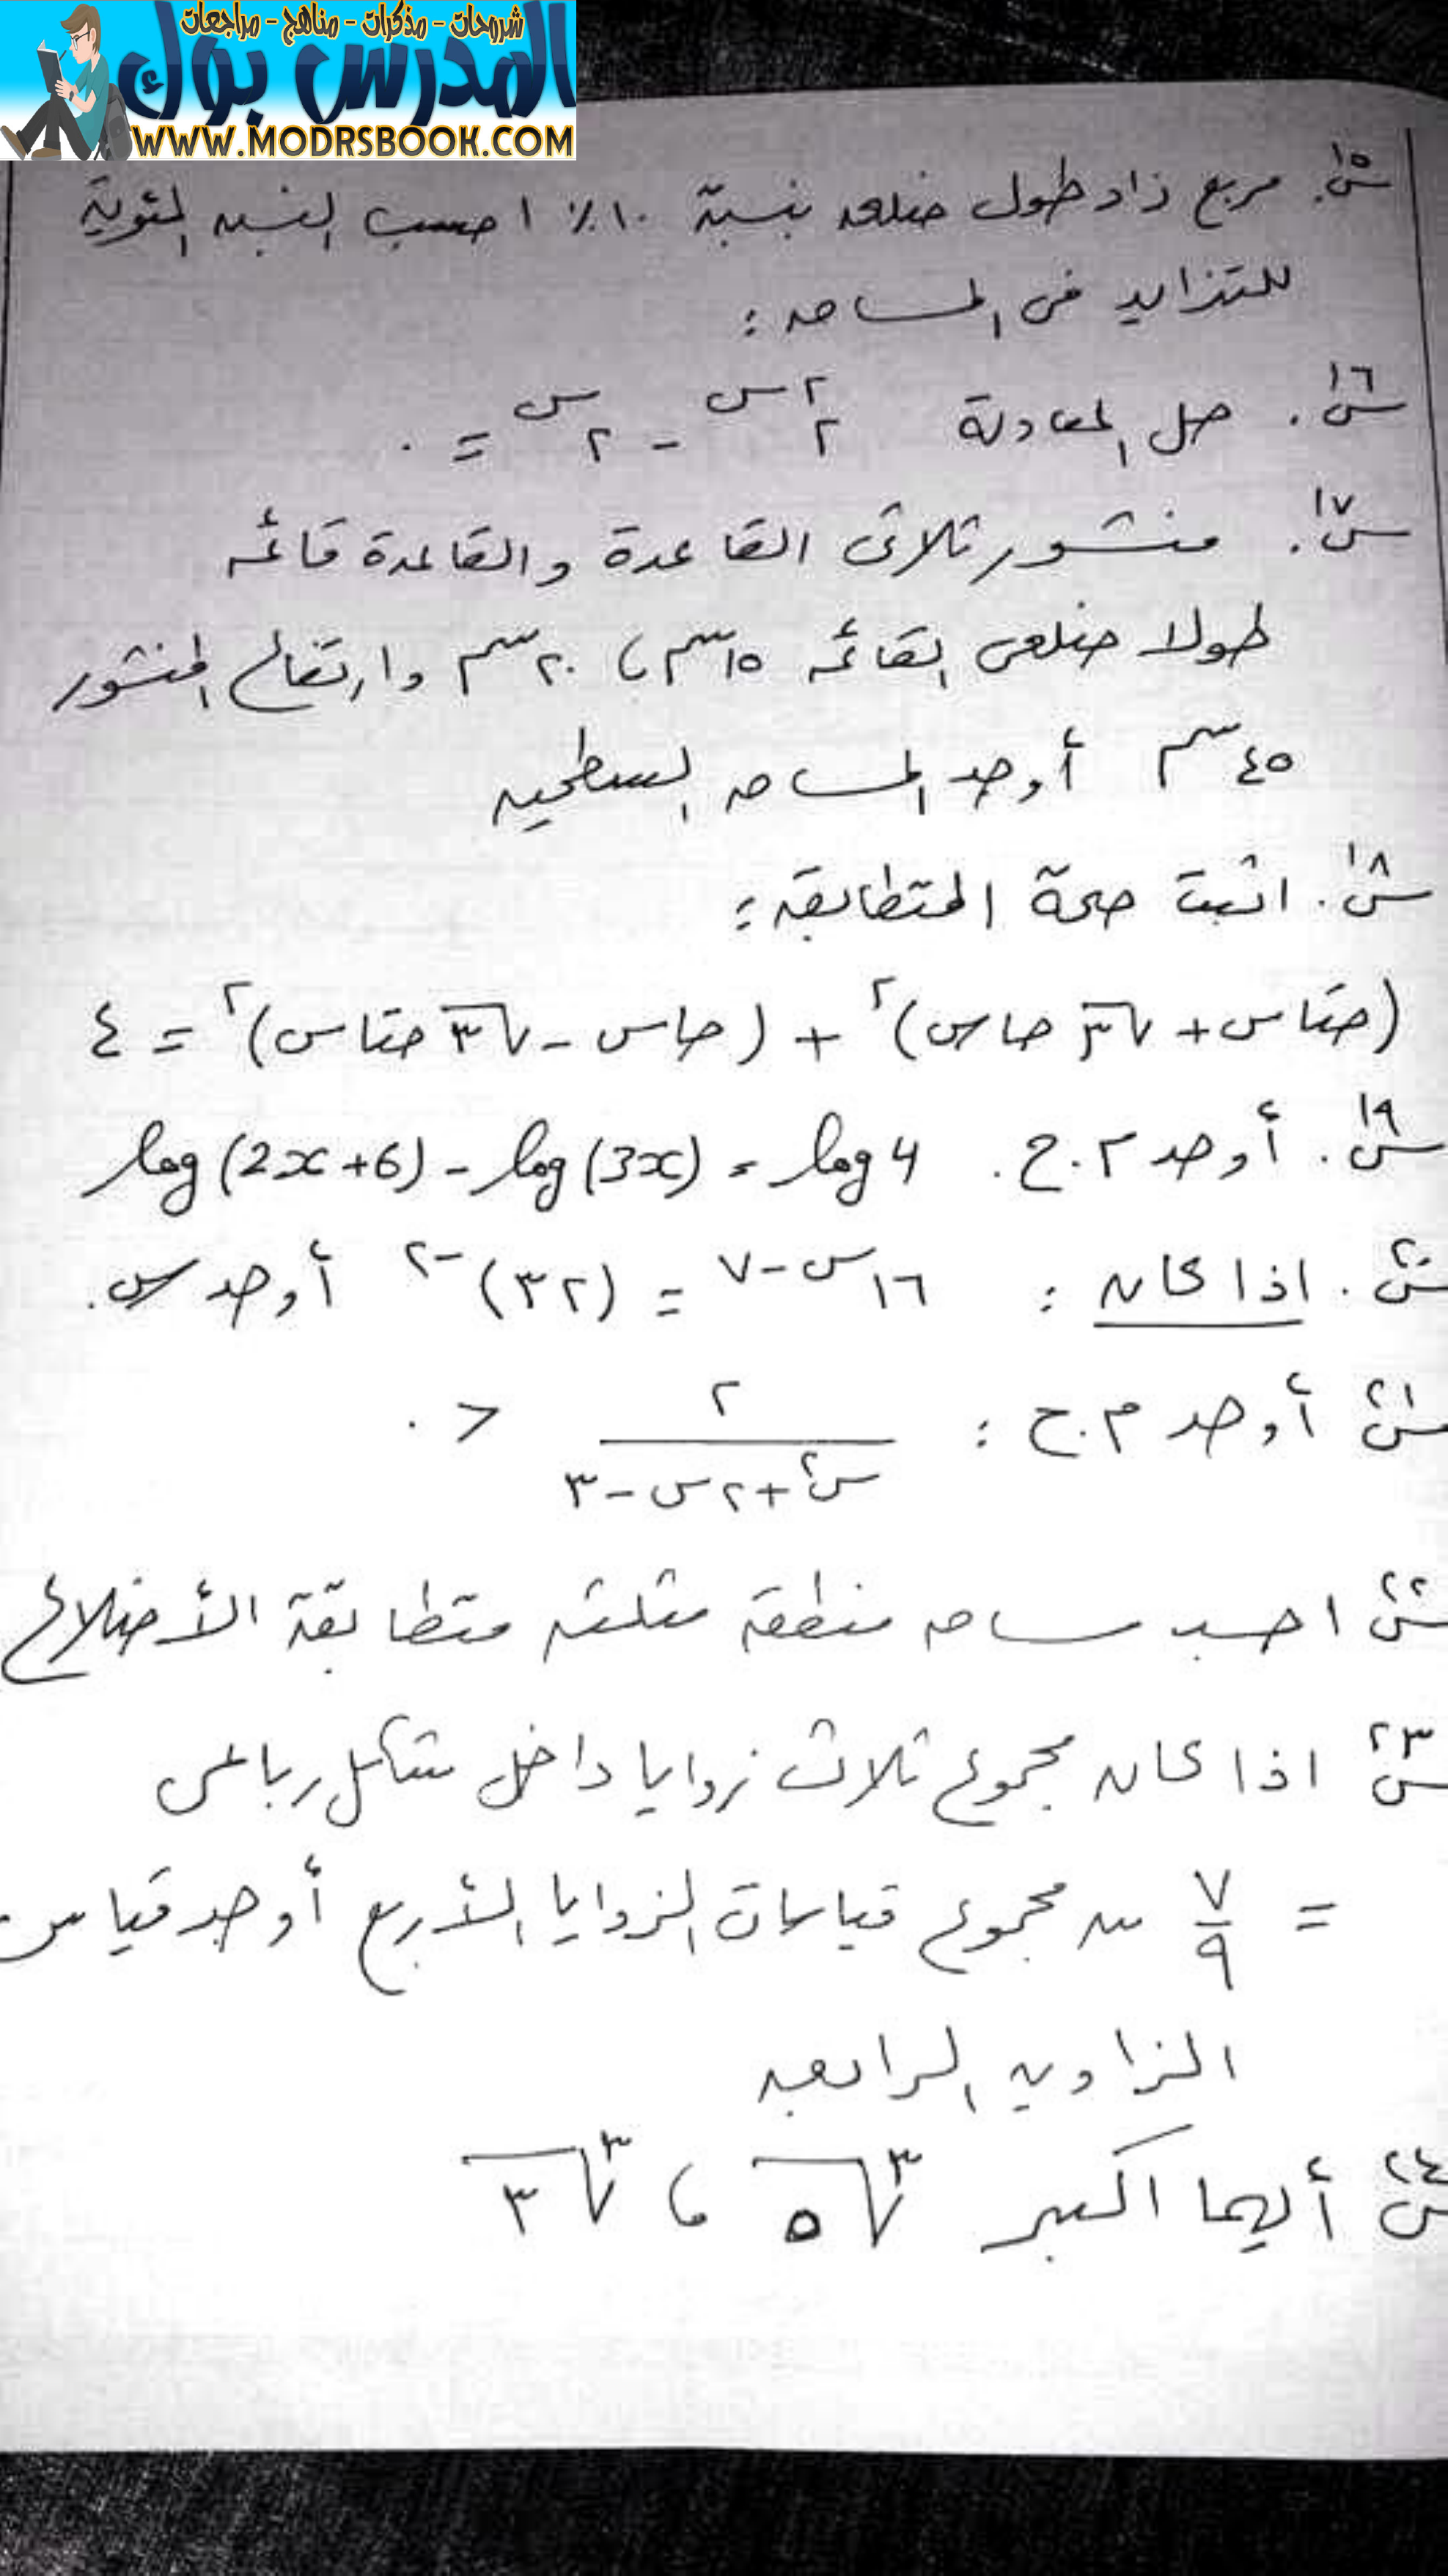 شروحات - مذكرات - مناهج - مراجعات
المدرس بوك
WWW.MODRSBOOK.COM
س١٥. مربع زاد طول ضلعه بنسبة ١٠٪ احسب النسبه المئوية
للتزايد فى المساحه :
س١٦. حل المعادلة ٢^٢س - ٢^س = ٠
س١٧. منشور ثلاثى القاعدة والقاعدة قائمه
طولا ضلعى القائمه ١٥سم ، ٢٠سم وارتفاع المنشور
٤٥سم أوجد المساحه السطحيه
س١٨. اثبت صحة المتطابقه :
(جتاس + √٣ جاس)^٢ + (جاس - √٣ جتاس)^٢ = ٤
س١٩. أوجد م.ح. log (2x+6) - log (3x) = log 4
س٢٠. اذا كان : ١٦^س-٧ = (٣٢)^-٢ أوجد س.
س٢١ أوجد م.ح : ٢/(س^٢+٢س-٣) < ٠
س٢٢ احسب مساحه منطقه مثلثه متطابقة الأضلاع
س٢٣ اذا كان مجموع ثلاث زوايا داخل شكل رباعى
= ٧/٩ من مجموع قياسات الزوايا الأربع أوجد قياس
الزاويه الرابعه
س٢٤ أيهما اكبر ٣√٥ ، ٣√٣